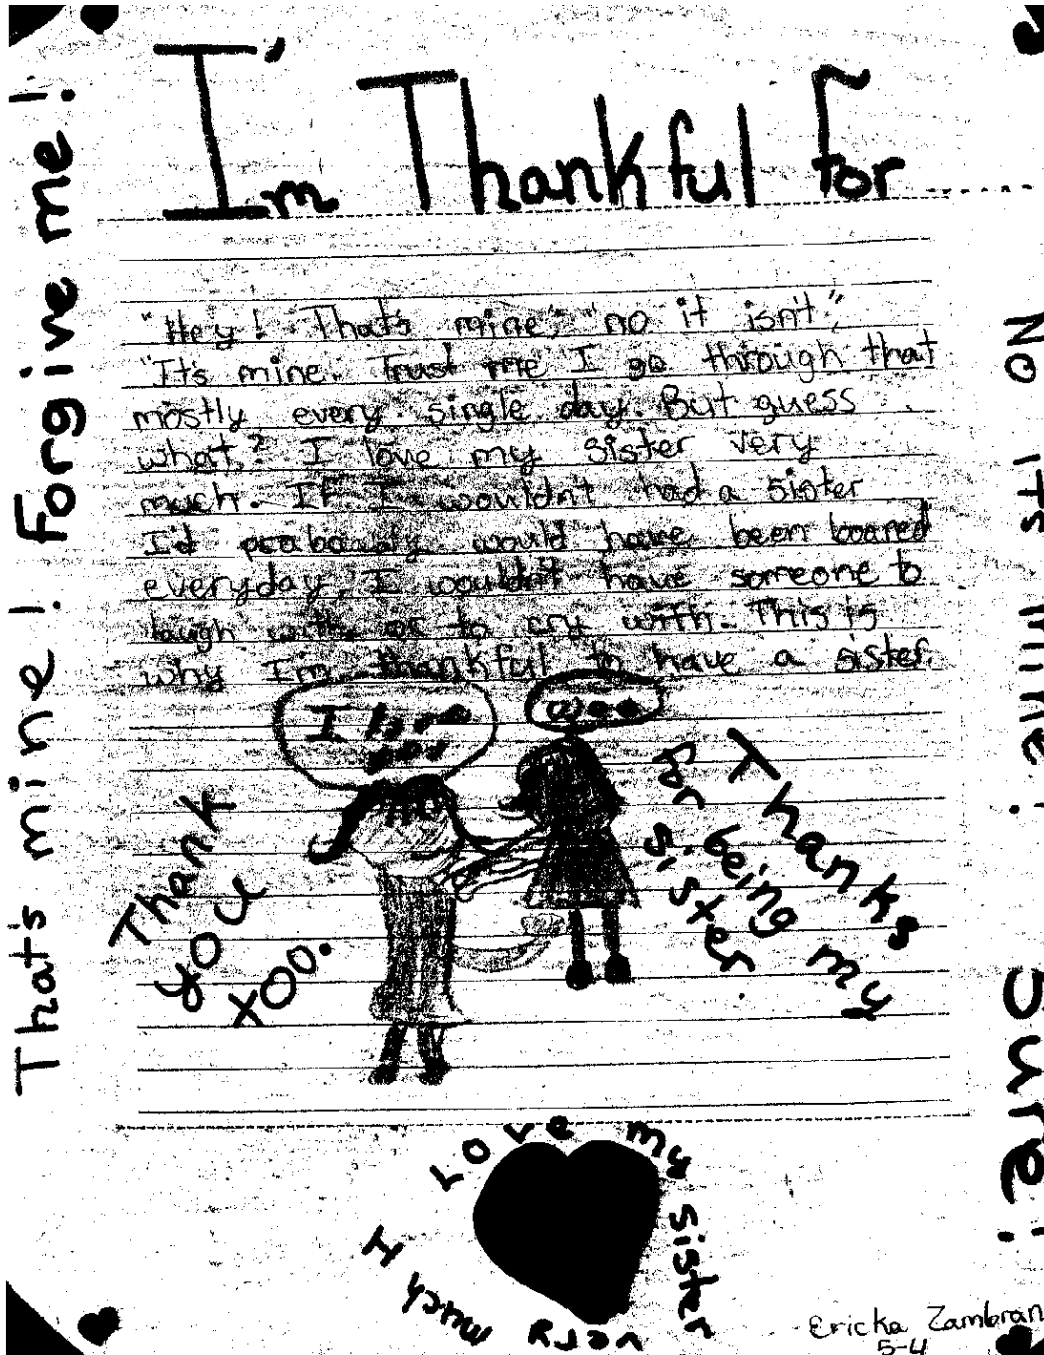 I'm Thankful For......
"Hey! That's mine", "no it isn't",
"It's mine. Trust me I go through that
mostly every single day. But guess
what? I love my sister very
much. If I wouldn't had a sister
I'd probably would have been boared
everyday, I wouldn't have someone to
laugh with or to cry with. This is
why I'm thankful to have a sister.
I love
you
Thank
you
too.
Thanks
for being my
sister
That's mine! Forgive me!
No its mine! Sure!
I Love my sister very much
Ericka Zambran
5-4